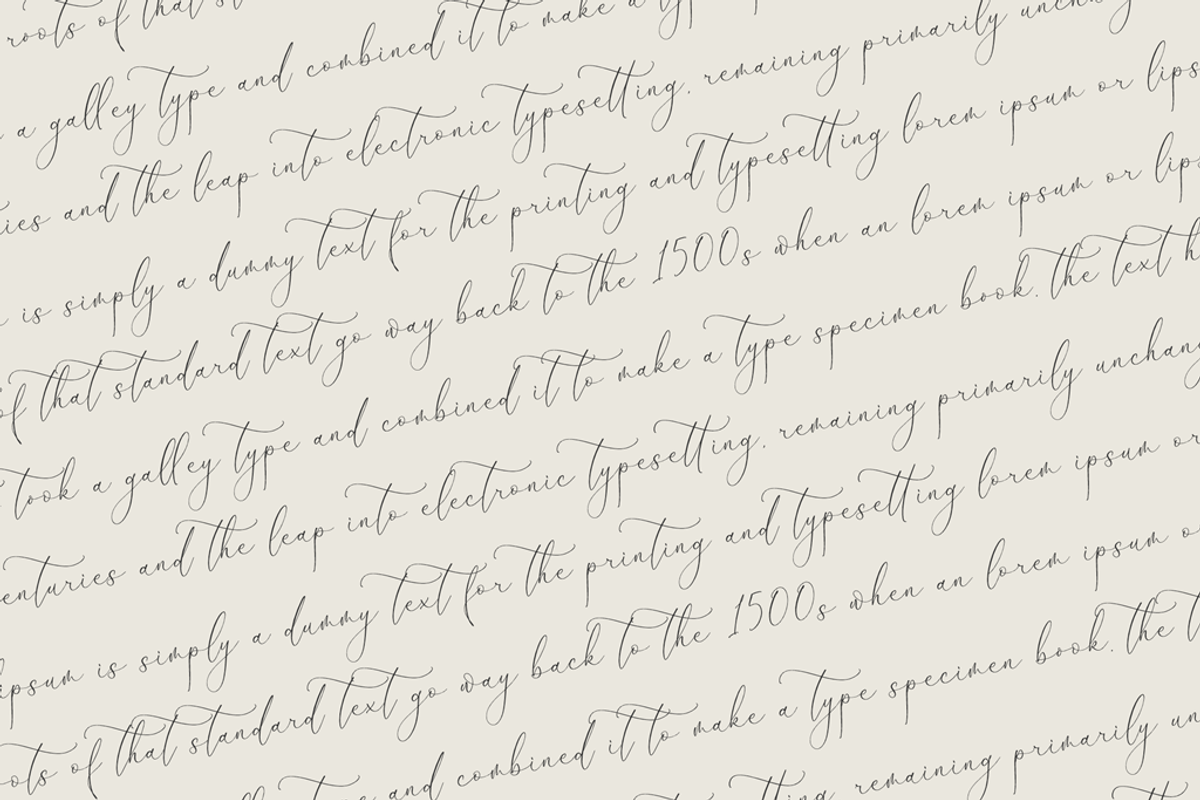 roots of that
a galley type and combined it to make a
and the leap into electronic typesetting. remaining primarily
is simply a dummy text for the printing and typesetting lorem ipsum or
of that standard text go way back to the 1500s when an lorem ipsum or
took a galley type and combined it to make a type specimen book. the text
and the leap into electronic typesetting. remaining primarily
ipsum is simply a dummy text for the printing and typesetting lorem ipsum or
of that standard text go way back to the 1500s when an lorem ipsum
and combined it to make a type specimen book. the
remaining primarily